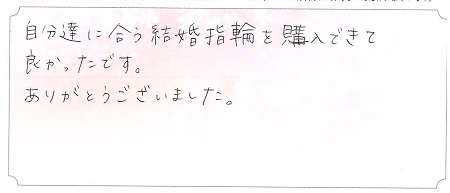 自分達に合う結婚指輪を購入できて
良かったです。
ありがとうございました。